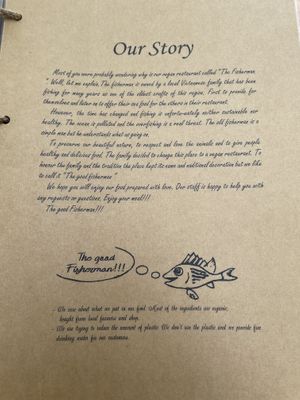 Our Story
Most of you were probably wondering why is our vegan restaurant called "The Fisherman
" Well, let me explain. The fisherman is owned by a local Vietnamese family that has been
fishing for many years as one of the oldest crafts of this region. First to provide for
themselves and later on to offer their sea food for the others in their restaurant.
However, the time has changed and fishing is unfortunately neither sustainable nor
healthy. The ocean is polluted and the overfishing is a real threat. The old fisherman is a
simple man but he understands what is going on.
To preserve our beautiful nature, to respect and love the animals and to give people
healthy and delicious food. The family decided to change this place to a vegan restaurant. To
honour the family and the tradition the place kept its name and nautical decoration but we like
to call it "The good fisherman"
We hope you will enjoy our food prepared with love. Our staff is happy to help you with
any requests or questions. Enjoy your meal!!!
The good Fisherman!!!
The good
Fisherman!!!
- We care about what we put in our food. Most of the ingredients are organic,
bought from local farmers and shop.
- We are trying to reduce the amount of plastic. We don't use the plastic and we provide free
drinking water for our customers.